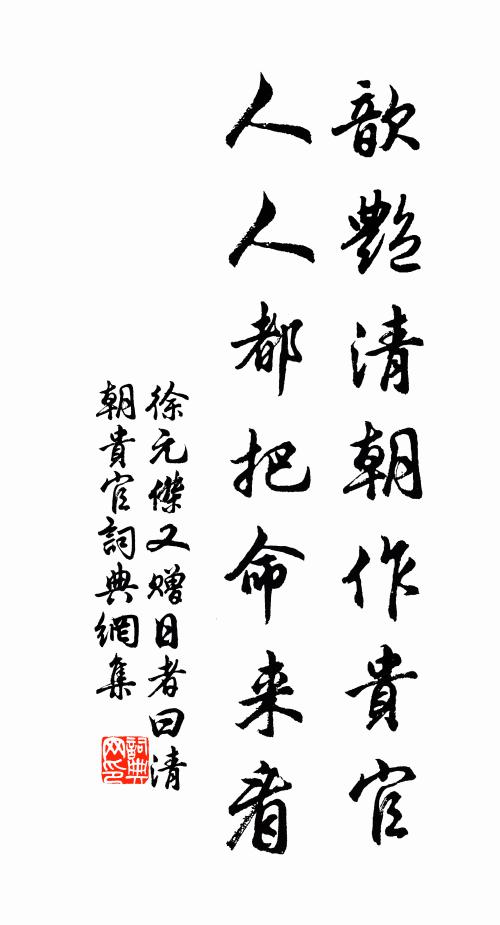 歆艷清朝作貴官
人人都把命来看
徐元傑又赠日者曰清
朝貴官詞典網集
詞典网印